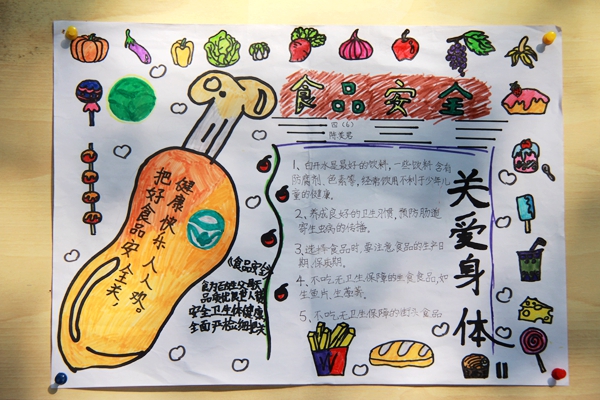 食品安全
四(6)
1、白开水是最好的饮料,一些饮料含有
防腐剂、色素等,经常饮用不利于少年儿
童的健康。
2、养成良好的卫生习惯,预防肠道
寄生虫病的传播。
3、选择食品时,要注意食品的生产日
期、保质期。
4、不吃无卫生保障的生食食品,如
生鱼片、生荠菜。
5、不吃无卫生保障的街头食品
关爱身体
健康快乐人人欢。
把好食品安全关,
《食品安全》
食为百姓头等天
安全卫生体健康
全面严检细把关